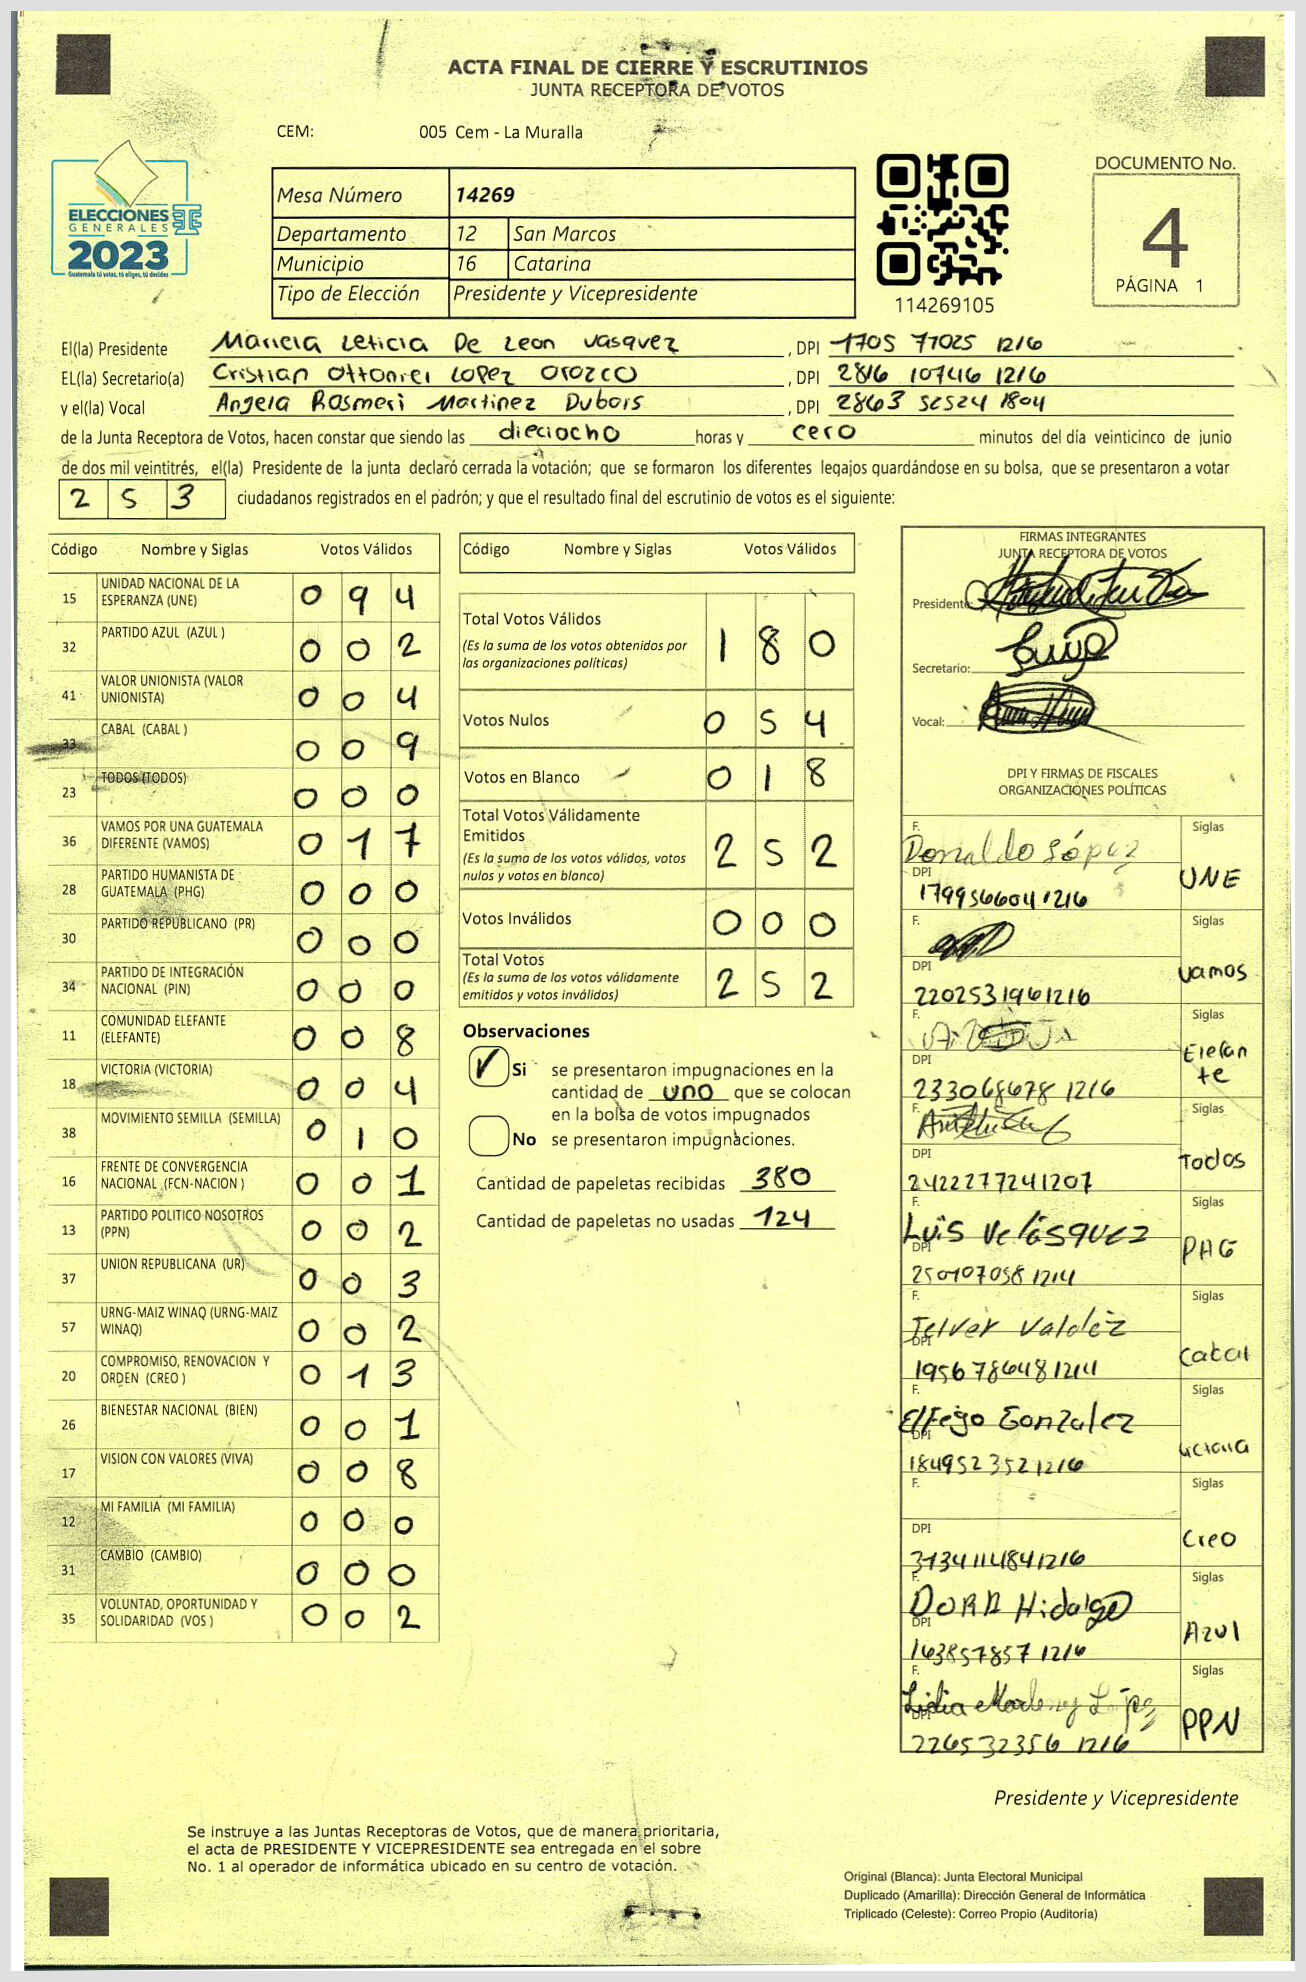 ACTA FINAL DE CIERRE Y ESCRUTINIOS
JUNTA RECEPTORA DE VOTOS
CEM: 005 Cem - La Muralla
ELECCIONES
GENERALES
2023
Guatemala tú votas, tú eliges, tú decides
Mesa Número 14269
Departamento 12 San Marcos
Municipio 16 Catarina
Tipo de Elección Presidente y Vicepresidente
114269105
DOCUMENTO No.
4
PÁGINA 1
El(la) Presidente Mariela Leticia De Leon Vasquez, DPI 1705 77025 1216
EL(la) Secretario(a) Cristian Ottoniel Lopez Orozco, DPI 2816 10746 1216
y el(la) Vocal Angela Rosmeri Martinez Dubois, DPI 2863 52524 1804
de la Junta Receptora de Votos, hacen constar que siendo las dieciocho horas y cero minutos del día veinticinco de junio
de dos mil veintitrés, el(la) Presidente de la junta declaró cerrada la votación; que se formaron los diferentes legajos guardándose en su bolsa, que se presentaron a votar
2 5 3 ciudadanos registrados en el padrón; y que el resultado final del escrutinio de votos es el siguiente:
Código Nombre y Siglas Votos Válidos
15 UNIDAD NACIONAL DE LA ESPERANZA (UNE) 0 9 4
32 PARTIDO AZUL (AZUL ) 0 0 2
41 VALOR UNIONISTA (VALOR UNIONISTA) 0 0 4
33 CABAL (CABAL ) 0 0 9
23 TODOS (TODOS) 0 0 0
36 VAMOS POR UNA GUATEMALA DIFERENTE (VAMOS) 0 1 7
28 PARTIDO HUMANISTA DE GUATEMALA (PHG) 0 0 0
30 PARTIDO REPUBLICANO (PR) 0 0 0
34 PARTIDO DE INTEGRACIÓN NACIONAL (PIN) 0 0 0
11 COMUNIDAD ELEFANTE (ELEFANTE) 0 0 8
18 VICTORIA (VICTORIA) 0 0 4
38 MOVIMIENTO SEMILLA (SEMILLA) 0 1 0
16 FRENTE DE CONVERGENCIA NACIONAL (FCN-NACION ) 0 0 1
13 PARTIDO POLITICO NOSOTROS (PPN) 0 0 2
37 UNION REPUBLICANA (UR) 0 0 3
57 URNG-MAIZ WINAQ (URNG-MAIZ WINAQ) 0 0 2
20 COMPROMISO, RENOVACION Y ORDEN (CREO ) 0 1 3
26 BIENESTAR NACIONAL (BIEN) 0 0 1
17 VISION CON VALORES (VIVA) 0 0 8
12 MI FAMILIA (MI FAMILIA) 0 0 0
31 CAMBIO (CAMBIO) 0 0 0
35 VOLUNTAD, OPORTUNIDAD Y SOLIDARIDAD (VOS ) 0 0 2
Código Nombre y Siglas Votos Válidos
Total Votos Válidos 1 8 0
(Es la suma de los votos obtenidos por
las organizaciones políticas)
Votos Nulos 0 5 4
Votos en Blanco 0 1 8
Total Votos Válidamente
Emitidos 2 5 2
(Es la suma de los votos válidos, votos
nulos y votos en blanco)
Votos Inválidos 0 0 0
Total Votos 2 5 2
(Es la suma de los votos válidamente
emitidos y votos inválidos)
Observaciones
Si se presentaron impugnaciones en la
cantidad de uno que se colocan
en la bolsa de votos impugnados
No se presentaron impugnaciones.
Cantidad de papeletas recibidas 380
Cantidad de papeletas no usadas 124
FIRMAS INTEGRANTES
JUNTA RECEPTORA DE VOTOS
Presidente:
Secretario:
Vocal:
DPI Y FIRMAS DE FISCALES
ORGANIZACIONES POLÍTICAS
F. Donaldo López Siglas
DPI 1799566041216 UNE
F. Siglas
DPI 2202531961216 Vamos
F. Siglas
DPI 233068678 1216 Elefante
F. Siglas
DPI 2422277241207 Todos
F. Luis Velásquez Siglas
DPI 250107058 1214 PHG
F. Jelver Valdéz Siglas
DPI 1956786481214 Cabal
F. Elfego Gonzalez Siglas
DPI 1849523521216 Victoria
F. Siglas
DPI 3134114841216 Creo
F. DORA Hidalgo Siglas
DPI 163857857 1216 Azul
F. Lidia Marleny López Siglas
DPI 226532356 1216 PPN
Presidente y Vicepresidente
Se instruye a las Juntas Receptoras de Votos, que de manera prioritaria,
el acta de PRESIDENTE Y VICEPRESIDENTE sea entregada en el sobre
No. 1 al operador de informática ubicado en su centro de votación.
Original (Blanca): Junta Electoral Municipal
Duplicado (Amarilla): Dirección General de Informática
Triplicado (Celeste): Correo Propio (Auditoría)